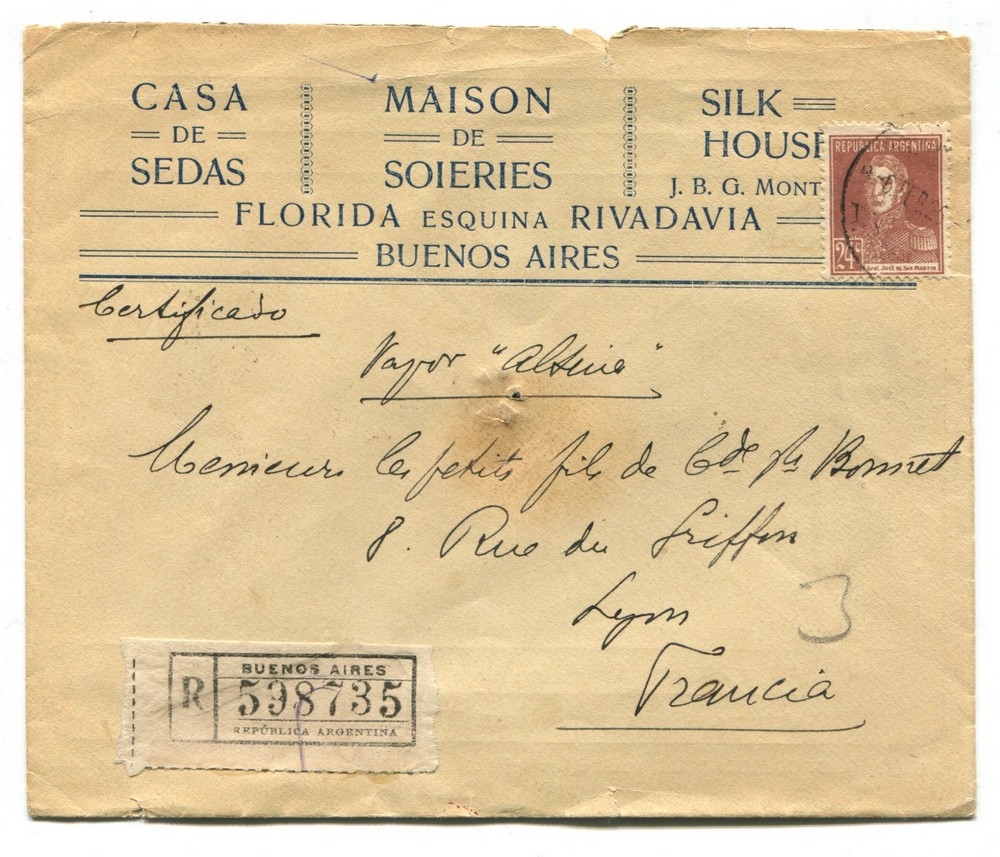 CASA
DE
SEDAS
MAISON
DE
SOIERIES
SILK
HOUSE
J. B. G. MONT
FLORIDA ESQUINA RIVADAVIA
BUENOS AIRES
REPUBLICA ARGENTINA
24c
GRAL JOSÉ DE SAN MARTIN
Certificado
Vapor "Alsina"
Messieurs les petits fils de Cde Bonnet
8. Rue du Griffon
Lyon
Francia
3
R
BUENOS AIRES
598735
REPÚBLICA ARGENTINA